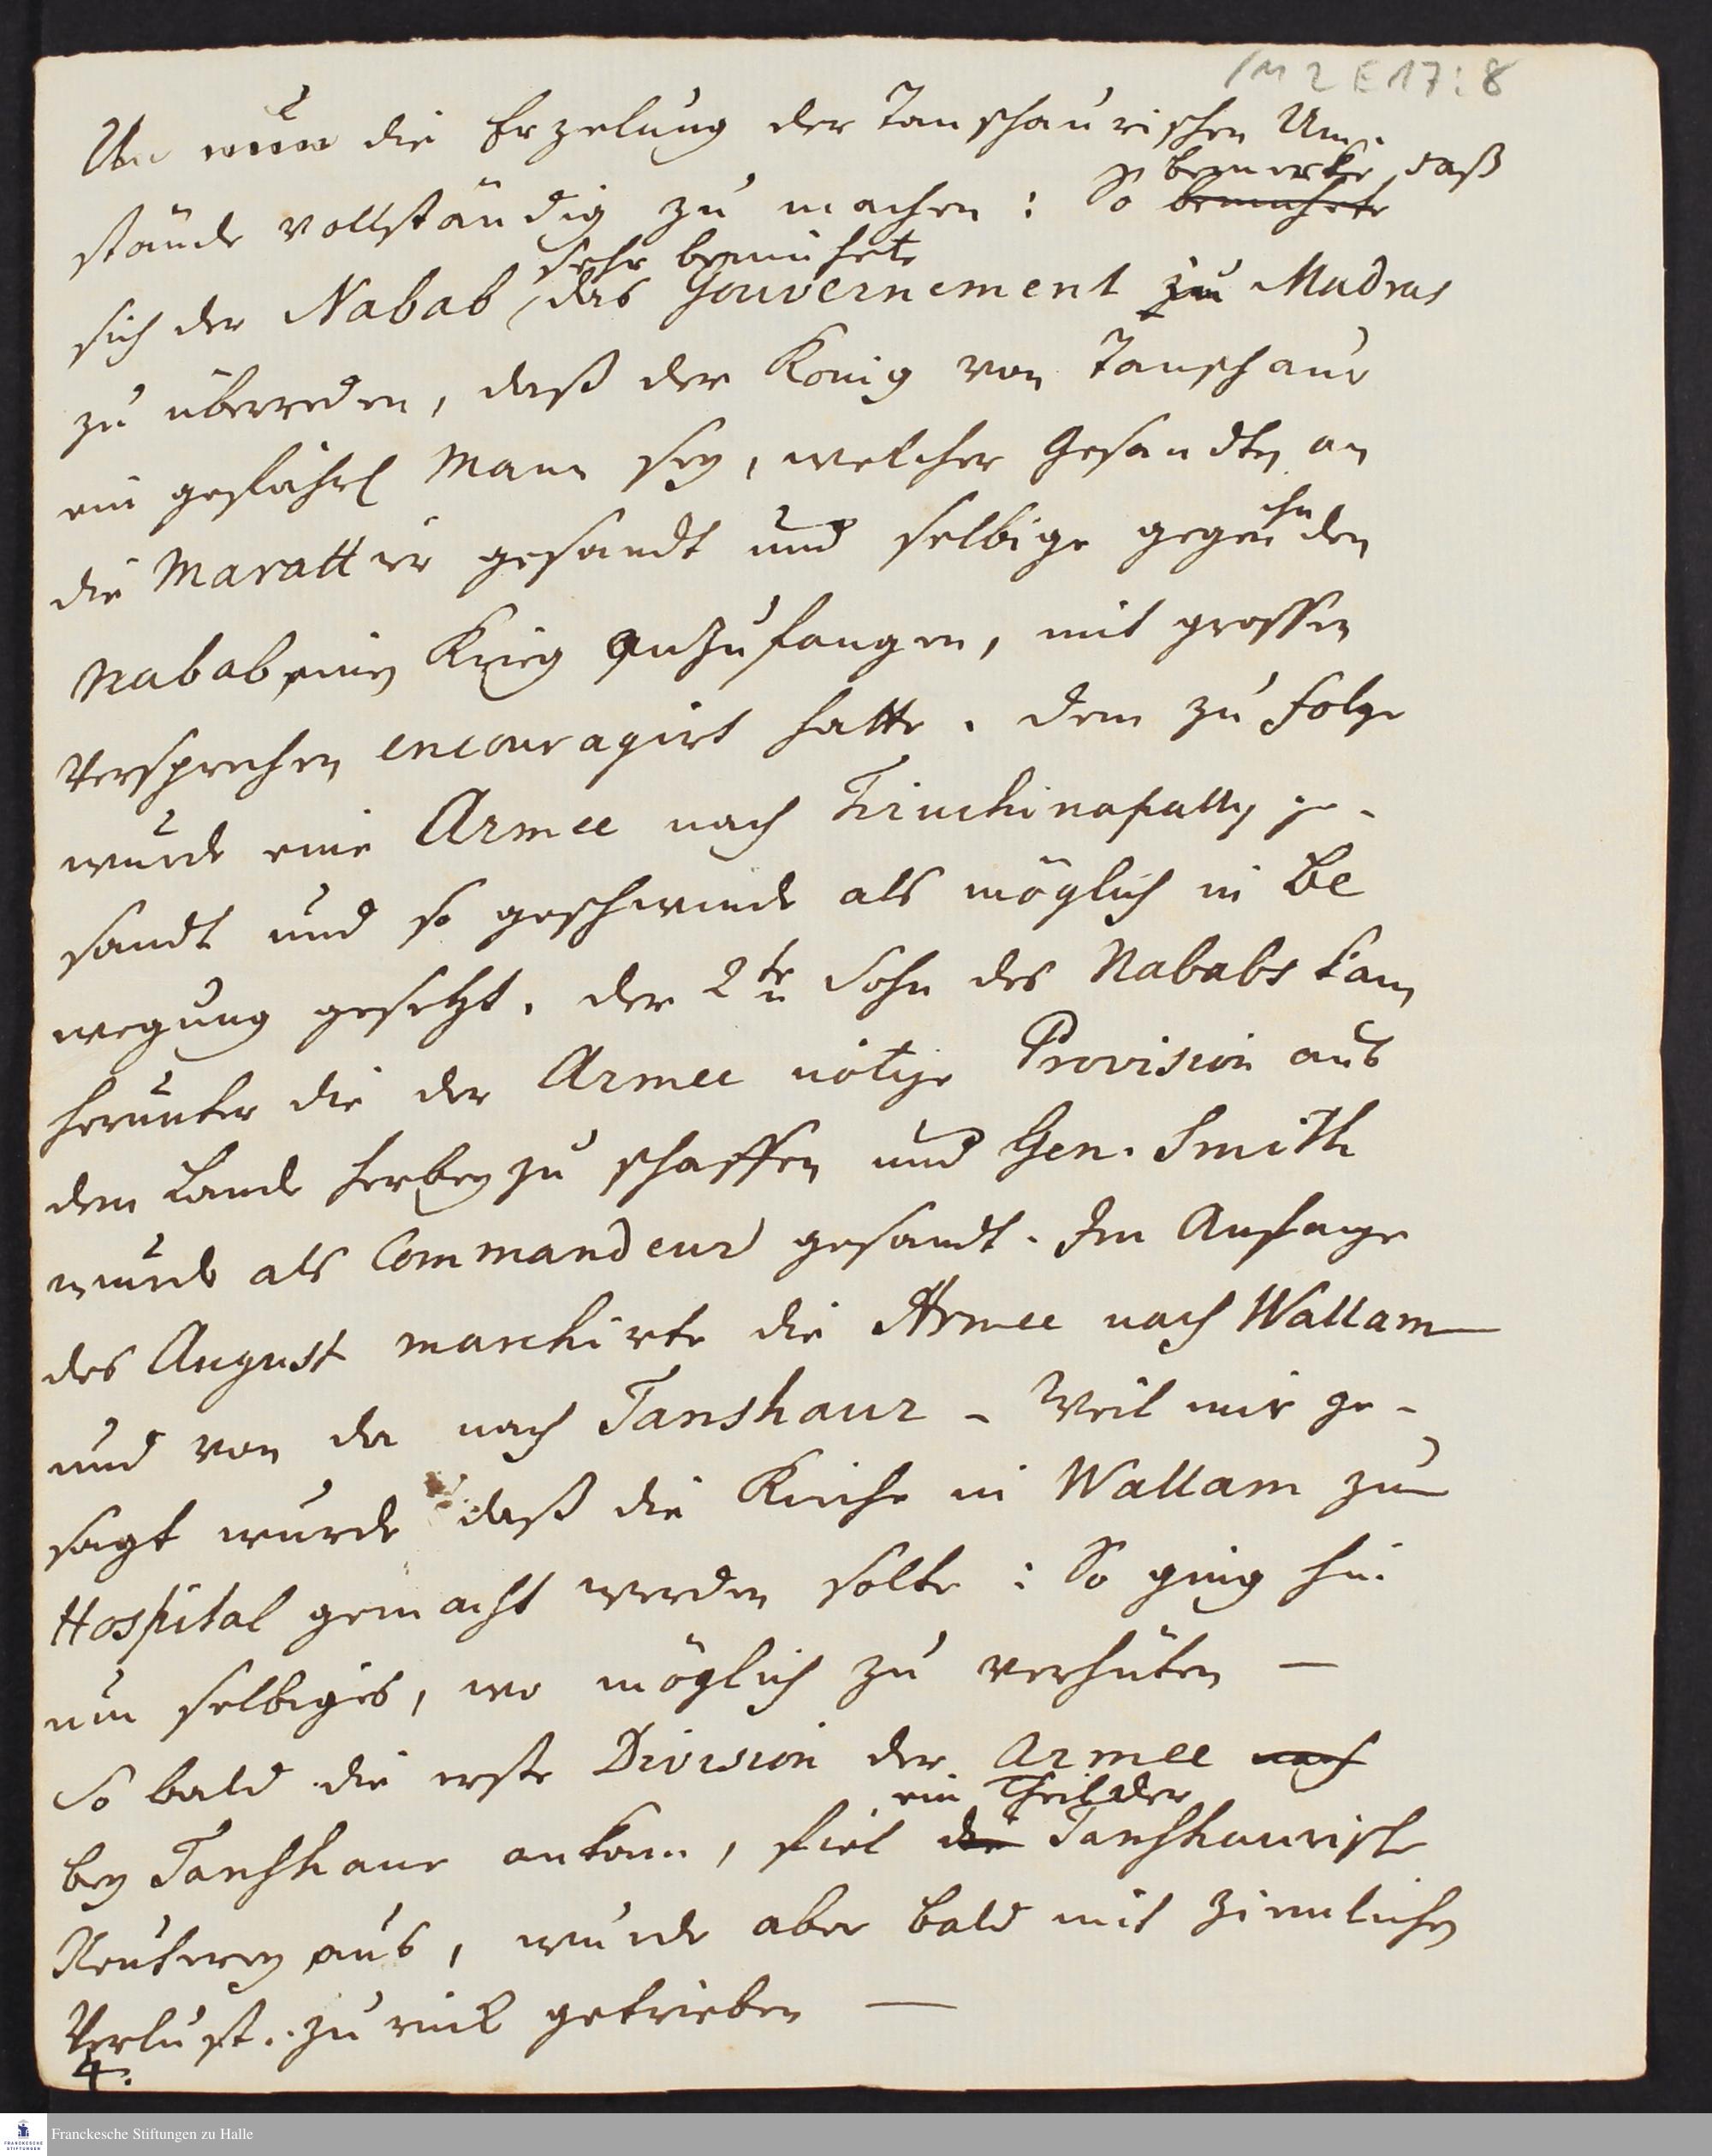 /M 2 E 17:8
Um nun die Erzelung der Tanschaurischen Um-
stände vollständig zu machen: So bemerke, daß
bemuhete
sich der Nabab sehr bemühete das Gouvernement zu Madras
zu überreden, daß der König von Tanschaur
ein gefährl Mann sey, welcher Gesandten an
die Maratter gesandt und selbige gegen ihn den
Nabab einen Krieg anzufangen, mit grossen
Versprechen encouragirt hatte. Dem zu folge
wurde eine Armee nach Tirutschinapally ge-
sandt und so geschwinde als möglich in Be
wegung gesetzt. Der 2te Sohn des Nababs kam
herunter die der Armee nötige Provision aus
dem Lande herbey zu schaffen und Gen. Smith
wurde als Commandeur gesandt. Im Anfange
des August marchirte die Armee nach Wallam
und von da nach Tanshaur - Weil mir ge-
sagt wurde daß die Kirche in Wallam zum
Hospital gemacht werden solte: So ging hin
um selbiges, wo möglich zu verhüten —
So bald die erste Division der Armee nach
bey Tanshaur ankam, fiel die ein Theil der Tanshaurische
Reuterey aus, wurde aber bald mit ziemlichen
Verlust zurück getrieben —
4.
Franckesche Stiftungen zu Halle
FRANCKESCHE
STIFTUNGEN